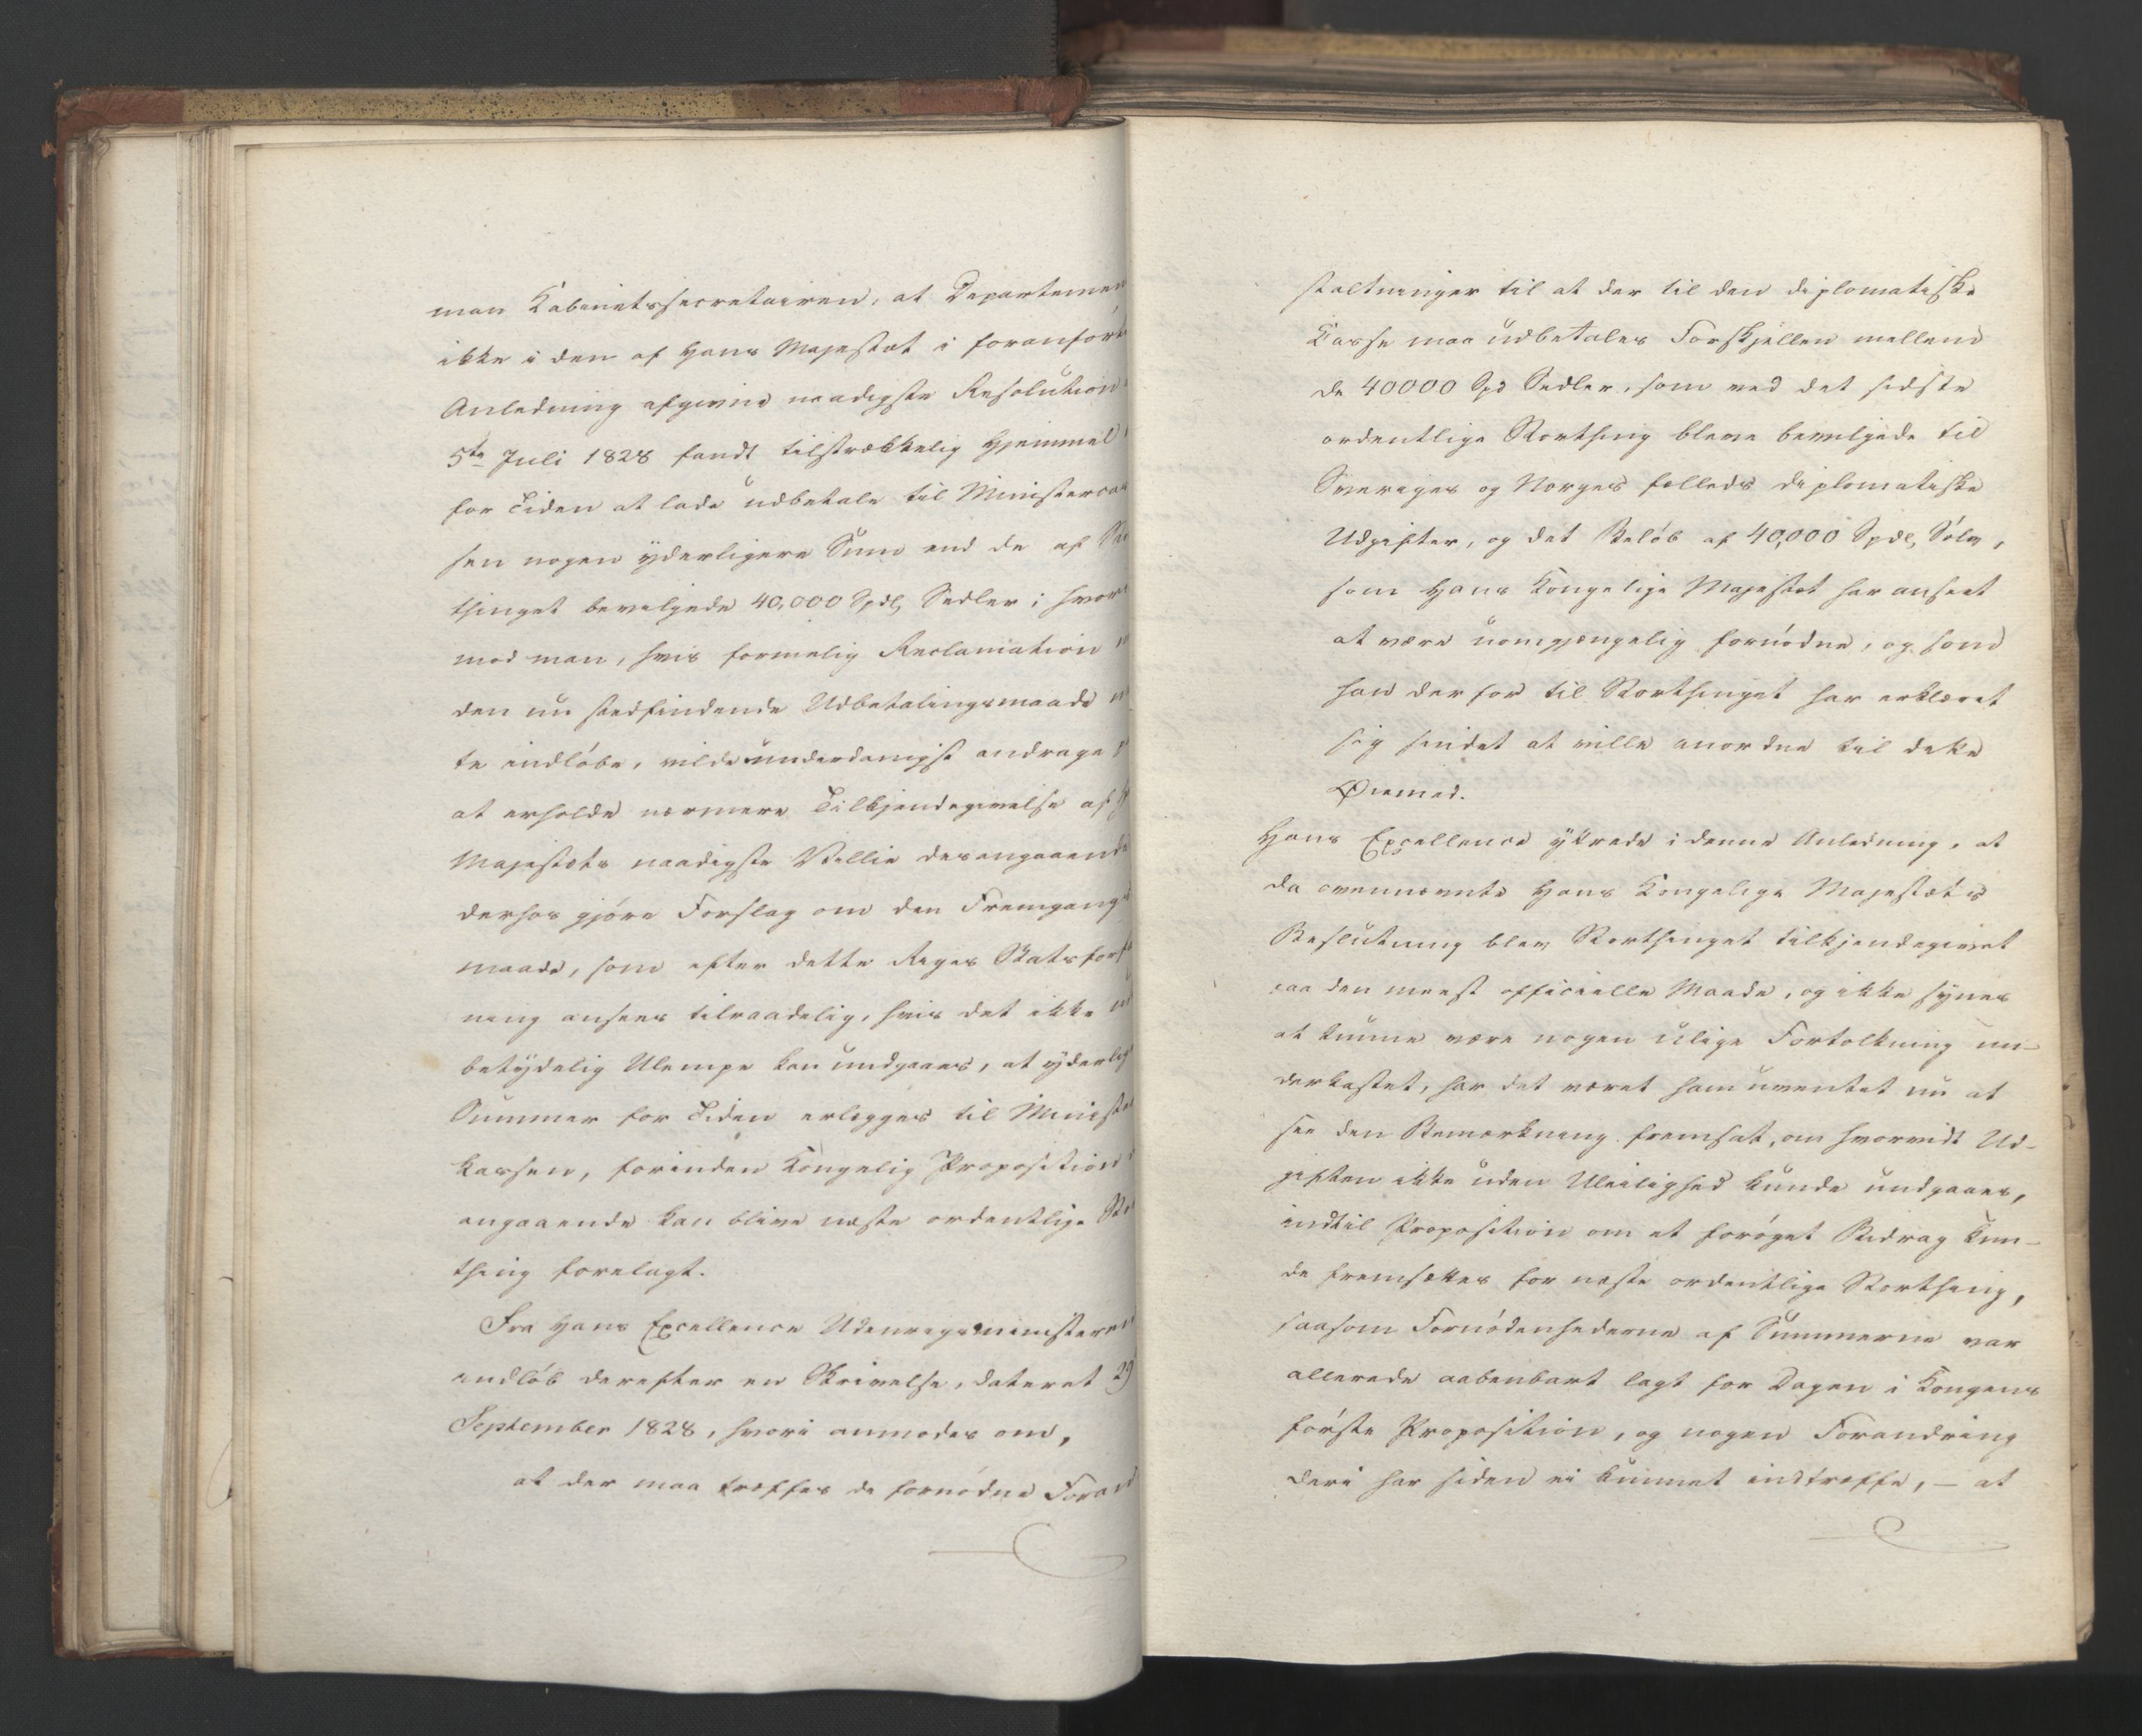 man Kabinetssecretairen, at Departemen
ikke i den af Hans Majestæt i foranfór
Anledning afgivne naadigste Resolution
5te Juli 1828 fandt tilstrækkelig Hjemmel
for Tiden at lade udbetale til Ministerca
sen nogen yderligere Sum end de af
thinget bevilgede 40,000 Spdl, Sedler; hvor
mod man, hvis formelig Reclamation
den nu stedfindende Udbetalingsmaade
te indlóbe, vilde underdanigst andrage
at erholde nærmere Tilkjendegivelse af
Majestæts naadigste Villie desangaaende
derhos gjóre Forslag om den Fremgangs
maade, som efter dette Riges Statsforf
ning ansees tilraadelig, hvis det ikke
betydelig Ulempe kan undgaaes, at yderlig
Summer for Tiden erlægges til Minist
kassen, forinden Kongelig Proposition
angaaende kan blive næste ordentlige Stor
thing forelagt.
Fra Hans Excellence Udenrigsministeren
indlób derefter en Skrivelse, dateret 29
September 1828, hvori anmodes om,
at der maa træffes de fornódne Foran
staltninger til at der til den diplomatiske
Kasse maa udbetales Forskjellen mellem
de 40000 Spd Sedler, som ved det sidste
ordentlige Storthing bleve bevilgede til
Sveriges og Norges fælleds diplomatiske
Udgifter, og det Belób af 40,000 Spdl, Sólv,
som Hans Kongelige Majestæt har anseet
at være uomgjængelig fornódne, og som
han derfor til Storthinget har erklæret
sig sindet at ville anordne til dette
Øiemed.
Hans Excellence yttrede i denne Anledning, at
da ovennævnte Hans Kongelige Majestæts
Beslutning blev Storthinget tilkjendegivet
paa den meest officielle Maade, og ikke synes
at kunne være nogen ulige Fortolkning un-
derkastet, har det været ham uventet nu at
see den Bemærkning fremsat, om hvorvidt Ud-
giften ikke uden Uleilighed kunde undgaaes,
indtil Proposition om et foróget Bidrag kun-
de fremsættes for næste ordentlige Storthing,
saasom Fornódenhederne af Summerne var
allerede aabenbart lagt for Dagen i Kongens
fórste Proposition, og nogen Forandring
deri har siden ei kunnet indtræffe, – at